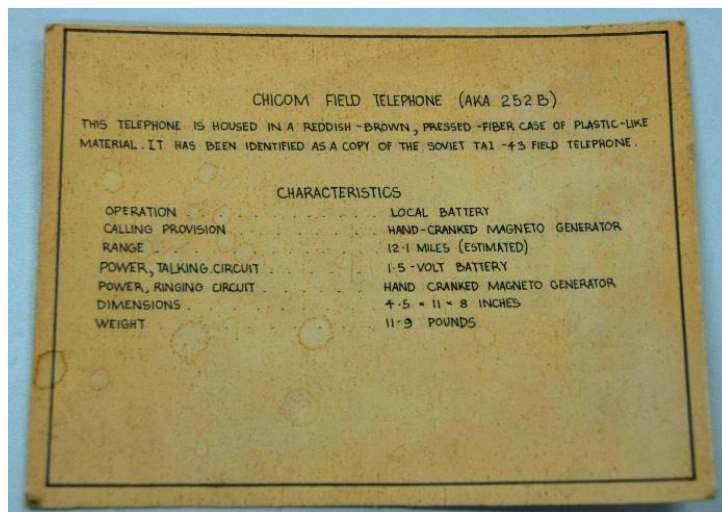 CHICOM FIELD TELEPHONE (AKA 252B)
THIS TELEPHONE IS HOUSED IN A REDDISH-BROWN, PRESSED-FIBER CASE OF PLASTIC-LIKE
MATERIAL. IT HAS BEEN IDENTIFIED AS A COPY OF THE SOVIET TAI-43 FIELD TELEPHONE.
CHARACTERISTICS
OPERATION . . . . . . . . . . LOCAL BATTERY
CALLING PROVISION . . . . . . . . HAND-CRANKED MAGNETO GENERATOR
RANGE . . . . . . . . . . . 12.1 MILES (ESTIMATED)
POWER, TALKING CIRCUIT . . . . . . . 1.5-VOLT BATTERY
POWER, RINGING CIRCUIT . . . . . . . HAND CRANKED MAGNETO GENERATOR
DIMENSIONS . . . . . . . . . . 4.5 × 11 × 8 INCHES
WEIGHT . . . . . . . . . . . 11.9 POUNDS